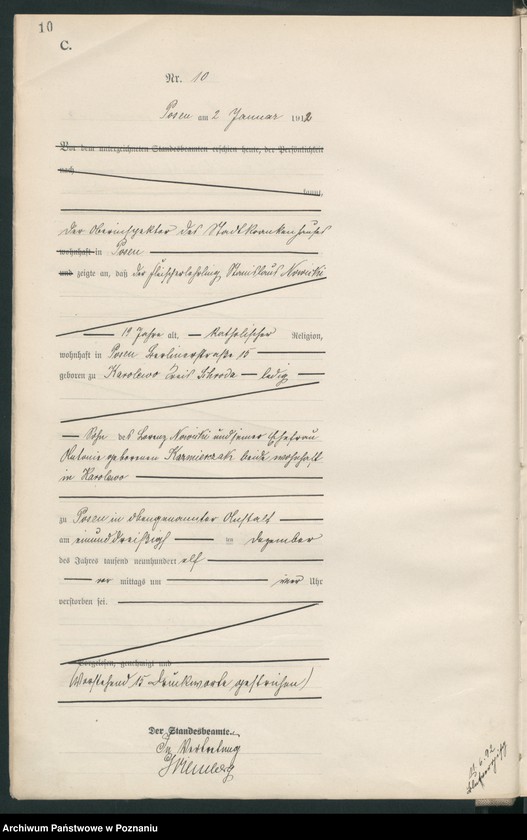 10
C.
Nr. 10
Posen am 2 Januar 1912
Vor dem unterzeichneten Standesbeamten erschien heute, der Persönlichkeit
nach
kannt,
Der Oberinspektor des Stadtkrankenhauses
wohnhaft in Posen
und zeigte an, daß der Fleischerlehrling Stanislaus Nowicki
19 Jahre alt, Katholischer Religion,
wohnhaft in Posen Berlinerstraße 15
geboren zu Karolewo Kreis Schroda ledig
Sohn des Lorenz Nowicki und seiner Ehefrau
Antonie geborenen Kazmierczak beide wohnhaft
in Karolewo
zu Posen in obengenannter Anstalt
am einunddreißigsten Dezember
des Jahres tausend neunhundert elf
vor mittags um Uhr
verstorben sei.
Vorgelesen, genehmigt und
Vorstehend 15 Druckworte gestrichen)
Der Standesbeamte.
In Vertretung
6.92
Archiwum Państwowe w Poznaniu